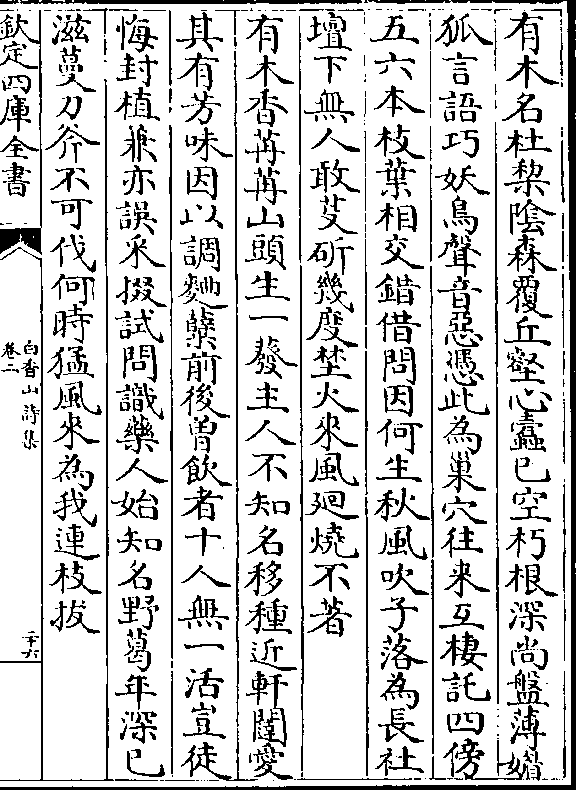 有木名杜梨陰森覆丘壑心蠹已空朽根深尚盤薄媚
狐言語巧妖鳥聲音惡憑此為巢穴往来互棲託四傍
五六本枝葉相交錯借問因何生秋風吹子落為長社
壇下無人敢芟斫幾度埜火來風廻燒不著
有木香苒苒山頭生一蕟主人不知名移種近軒闥愛
其有芳味因以調麯糵前後曽飲者十人無一活豈徒
悔封植兼亦誤采掇試問識藥人始知名野葛年深已
滋蔓刀斧不可伐何時猛風來為我連枝拔
欽定四庫全書
白香山詩集
卷二
二十六